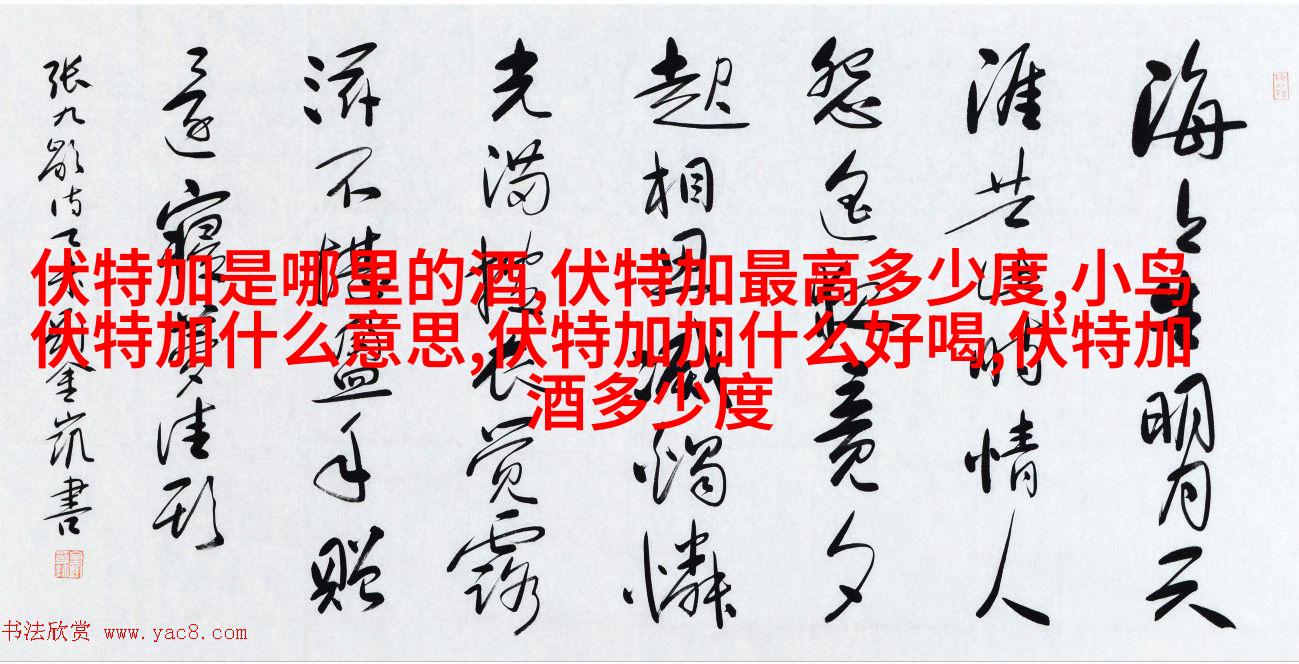 伏特加是哪里的酒,伏特加最高多少度,小鸟
伏特加什么意思,伏特加加什么好喝,伏特加
酒多少度
海上生明月天
涯共此時情人
怨遥夜竟夕
起相思滅燭憐
光満披衣覺露
滋不堪盈手贈
還寝夢佳期
张九龄诗 書
书法欣赏 www.yac8.com